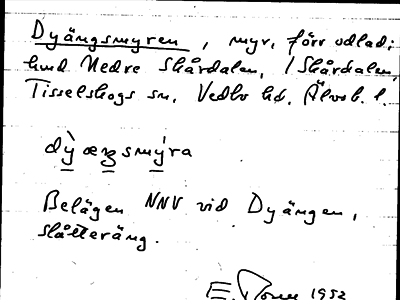 Dyängsmyren, myr, förr odlad;
hmd Nedre Skårdalen, /Skårdalen,
Tisselskogs sn, Vedbo hd, Älvsb. l.
dy̍ æŋsmy̍ra
Belägen NNV vid Dyängen,
slåtteräng.
1952